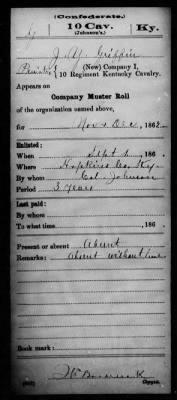 (Confederate.)
10 Cav. Ky.
(Johnson's.)
J. W. Griffin
Private, (New) Company I,
10 Regiment Kentucky Cavalry.
Appears on
Company Muster Roll
of the organization named above,
for Nov & Dec, 1862.
Enlisted:
When Sept 1, 186
Where Hopkins Co, Ky.
By whom Col. Johnson
Period 3 years
Last paid:
By whom
To what time , 186 .
Present or absent Absent
Remarks: Absent without leave
Book mark:
Copyist.